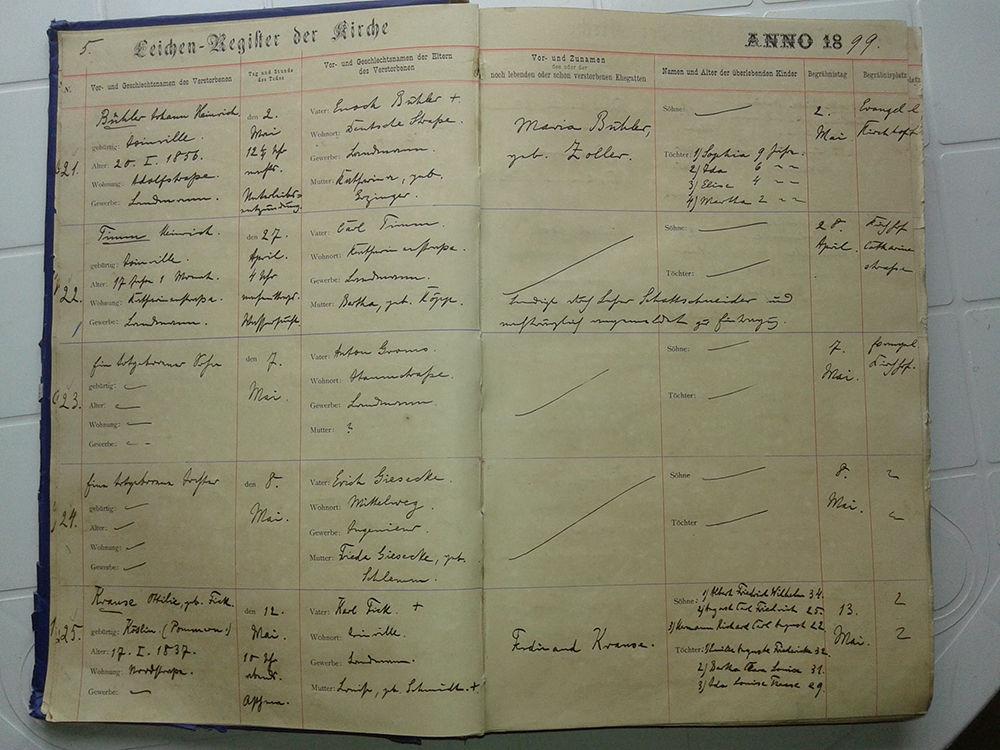 5.
Leichen-Register der Kirche
ANNO 1899.
N.
Vor- und Geschlechtsnamen des Verstorbenen
Tag und Stunde
des Todes
Vor- und Geschlechtsnamen der Eltern
des Verstorbenen
Vor- und Zunamen
des oder der
noch lebenden oder schon verstorbenen Ehegatten
Namen und Alter der überlebenden Kinder
Begräbnistag
Begräbnisplatz
21.
Bühler Johann Heinrich
gebürtig: Joinville.
Alter: 20. I. 1856.
Wohnung: Adolfstraße.
Gewerbe: Landmann.
den 2.
Mai
12 ½ Uhr
nachts.
Unterleibs=
entzündung.
Vater: Enoch Bühler +
Wohnort: Deutsche Straße.
Gewerbe: Landmann.
Mutter: Katharina, geb.
Maria Bühler,
geb. Zoller.
Söhne:
Töchter: 1) Sophia 9 Jahre.
2) Ida 6 " "
3) Elise 4 " "
4) Martha 2 " "
2.
Mai
Evangel
Kirchhof
22.
Timm Heinrich.
gebürtig: Joinville.
Alter: 17 Jahre 1 Monat.
Wohnung: Katharinenstraße.
Gewerbe: Landmann.
den 27.
April.
4 Uhr
Wassersucht.
Vater: Carl Timm.
Wohnort: Katharinenstraße.
Gewerbe: Landmann.
Mutter: Bertha, geb. Köpp.
durch Lehrer Schattschneider und
nachträglich angemeldet zu Eintragung.
Söhne:
Töchter:
28.
April
Kirchhof
Catharinen
straße
23.
Ein totgeborener Sohn
gebürtig:
Alter:
Wohnung:
Gewerbe:
den 7.
Mai.
Vater: Anton
Wohnort:
Gewerbe: Landmann.
Mutter: ?
Söhne:
Töchter:
7.
Mai.
Kirchhf.
24.
Eine totgeborene Tochter
gebürtig:
Alter:
Wohnung:
Gewerbe:
den 8.
Mai.
Vater: Erich Giesecke.
Wohnort: Mittelweg.
Gewerbe: Ingenieur.
Mutter: Frieda Giesecke, geb.
Schlemm.
Söhne
Töchter
8.
Mai.
25.
Krause Ottilie, geb. Fick.
gebürtig: Köslin (Pommern.)
Alter: 17. I. 1837.
Wohnung: Nordstraße.
Gewerbe:
den 12.
Mai.
10 Uhr
abends.
Asthma.
Vater: Karl Fick. +
Wohnort: Joinville.
Gewerbe: Landmann.
Mutter: Louise, geb. Schmidt. +
Ferdinand Krause.
Söhne: 1) Albert Friedrich Wilhelm 34.
2) August Carl Friedrich 25.
3) Hermann Richard Carl August 22
Töchter: 1) Emilie Auguste Friedericke 32.
2) Bertha Louise 31.
3) Ida Louise 29.
13.
Mai.